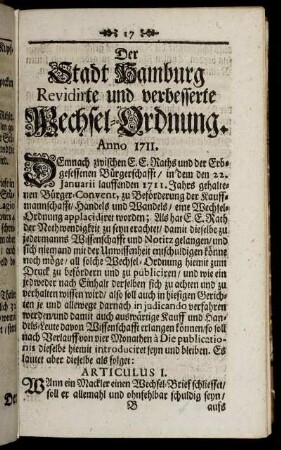 17
Der
Stadt Hamburg
Revidirte und verbesserte
Wechsel-Ordnung.
Anno 1711.
DEmnach zwischen E. E. Raths und der Erb-
gesessenen Bürgerschafft / in dem den 22.
Januarii lauffenden 1711. Jahrs gehalte-
nen Bürger-Convent, zu Beförderung der Kauff-
mannschafft / Handels und Wandels / eine Wechsel-
Ordnung applacidiret worden; Als hat E. E. Rath
der Nothwendigkeit zu seyn erachtet / damit dieselbe zu
jedermanns Wissenschafft und Notitz gelangen / und
sich niemand mit der Unwissenheit entschuldigen könne
noch möge / all solche Wechsel-Ordnung hiemit zum
Druck zu befördern und zu publiciren / und wie ein
jedweder nach Einhalt derselben sich zu achten und zu
verhalten wissen wird / als soll auch in hiesigen Gerich-
ten je und allewege darnach in judicando verfahren
werden / und damit auch auswärtige Kauff und Han-
dels-Leute davon Wissenschafft erlangen können / so soll
nach Verlauff von vier Monathen à Die publicatio-
nis dieselbe hiemit introduciret seyn und bleiben. Es
lautet aber dieselbe als folget:
ARTICULUS I.
WAnn ein Mackler einen Wechsel-Brief schliesset /
soll er allemahl und ohnfehlbar schuldig seyn /
B aufs